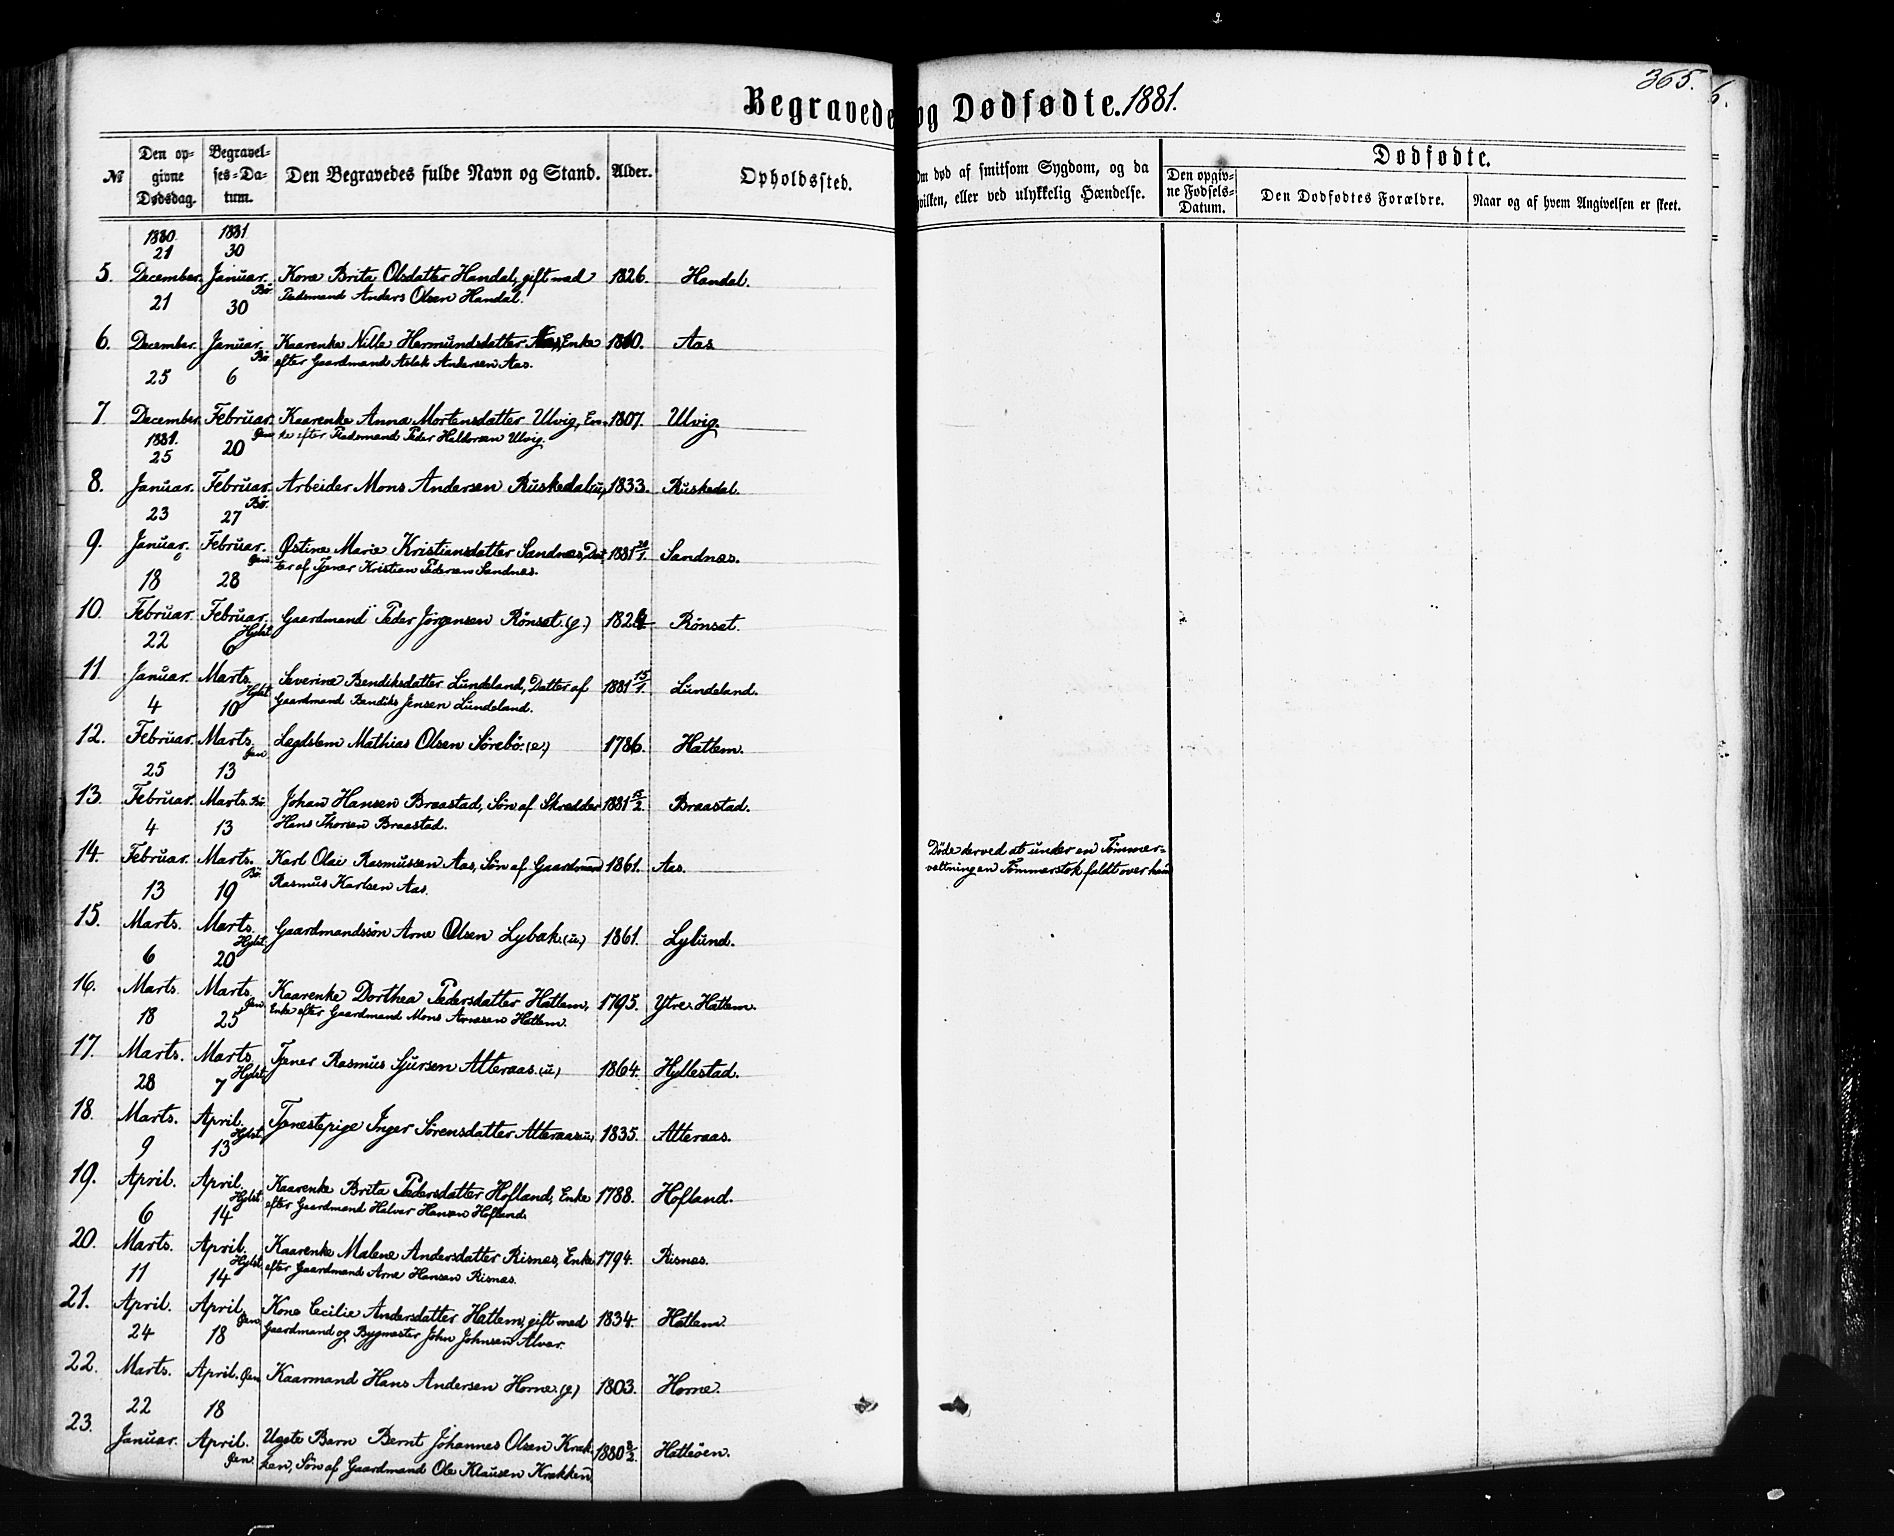 365.
6.
Begravede og Dødfødte. 1881.
№
Den opgivne Dødsdag.
Begravelses-Datum.
Den Begravedes fulde Navn og Stand.
Alder.
Opholdssted.
Om død af smitsom Sygdom, og da
hvilken, eller ved ulykkelig Hændelse.
Dødfødte.
Den opgivne Fødsels-Datum.
Den Dødfødtes Forældre.
Naar og af hvem Angivelsen er skeet.
1880. 1881
21 30
5. December. Januar. Bø. Kone Brita Olsdatter Handal, gift med 1826. Handal.
Pladsmand Anders Olsen Handal.
21 30
6. December. Januar. Bø. Kaarenke Nille Hermundsdatter Aas, Enke Aas
efter Gaardmand Aslak Andersen Aas.
25 6
7 December. Februar. Øen Kaarenke Anna Mortensdatter Ulvig, En- 1807. Ulvig.
ke efter Pladsmand Peder Haldorsen Ulvig.
1881.
25 20
8. Januar. Februar. Bø. Arbeider Mons Andersen Ruskedal (u) 1833. Ruskedal.
23 27
9. Januar. Februar. Øen. Østine Marie Kristiansdatter Sandnes, Dat 1881 20/1. Sandnes.
ter af Tjener Kristian Pedersen Sandnes.
18 28
10. Februar. Februar. Hylst Gaardmand Peder Jørgensen Rønset. (g.) Rønset.
22 6
11. Januar. Marts. Hylst. Severine Bendiksdatter Lundeland, Datter af 1881 15/1. Lundeland.
Gaardmand Bendiks Jensen Lundeland.
4 10
12. Februar. Marts. Øen Legdslem Mathias Olsen Sørebø. (e.) 1786. Hatlem.
25 13
13. Februar. Marts. Bø. Johan Hansen Braastad, Søn af Skrædder 1881 15/2. Braastad.
Hans Thorsen Braastad.
4 13
14. Februar. Marts. Bø. Karl Olai Rasmussen Aas, Søn af Gaardmand 1861. Aas. Døde derved at under en Tømmer-
Rasmus Karlsen Aas. væltning en Tømmerstok faldt over ham
13 19
15. Marts. Marts. Hylst. Gaardmandssøn Arne Olsen Lybak. (u.) 1861. Lylund.
6 20
16. Marts. Marts. Øen Kaarenke Dorthea Pedersdatter Hatlem, 1795. Ytre Hatlem.
Enke efter Gaardmand Mons Arnesen Hatlem.
18 25
17. Marts. Marts Hylst. Tjener Rasmus Sjursen Alteraas. (u) 1864. Hyllestad.
28 7
18. Marts. April. Hylst. Tjenestepige Inger Sørensdatter Alteraas (u) 1835. Alteraas.
9 13
19. April. April. Hylst Kaarenke Brita Pedersdatter Hofland, Enke 1788. Hofland.
efter Gaardmand Halvor Hansen Hofland.
6 14
20. Marts. April. Hylst. Kaarenke Malene Andersdatter Risnes, Enke 1794. Risnes.
efter Gaardmand Arne Hansen Risnes.
11 14
21. April. April. Øen Kone Cecilie Andersdatter Hatlem, gift med 1834. Hatlem
Gaardmand og Bygmester John Johnsen Alvær.
24 18
22. Marts. April. Øen Kaarmand Hans Andersen Horne. (g) 1803. Horne.
22 18
23. Januar. April. Øen. Ugte Barn Bernt Johannes Olsen Krak- 1880 Hatleøen.
ken, Søn af Gaardmand Ole Klausen Krakken